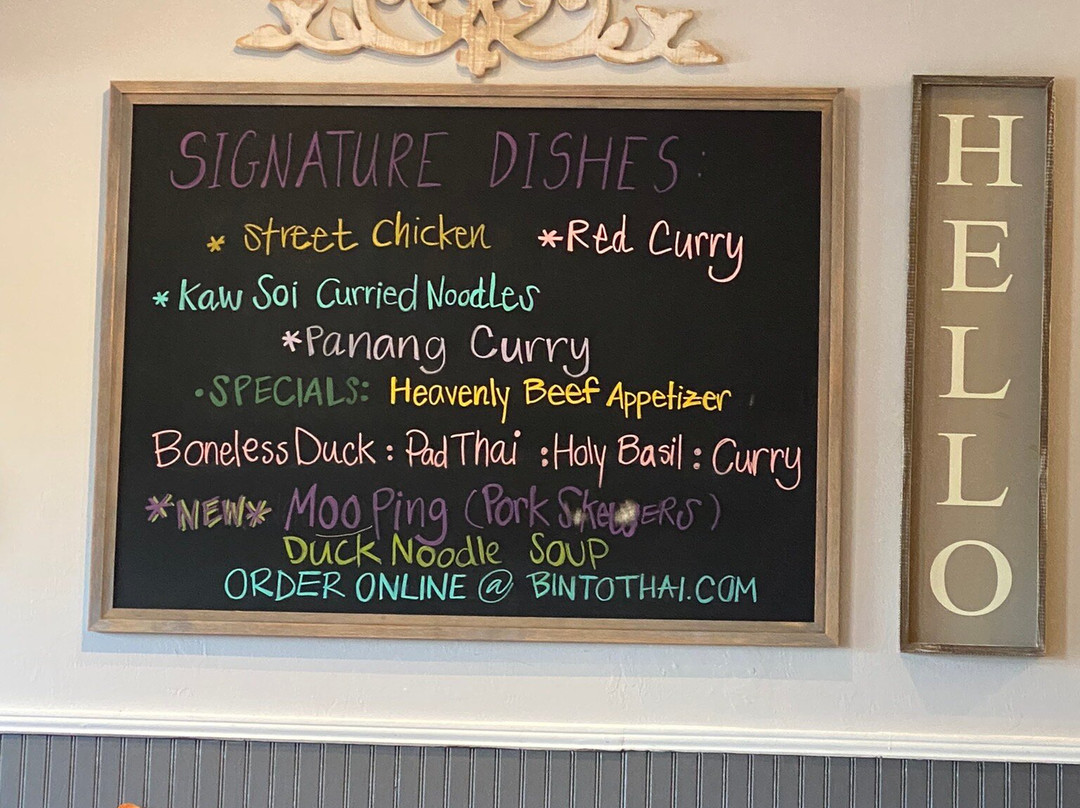 SIGNATURE DISHES:
* Street Chicken *Red Curry
* Kaw Soi Curried Noodles
*Panang Curry
•SPECIALS: Heavenly Beef Appetizer
Boneless Duck : Pad Thai : Holy Basil : Curry
*NEW* Moo Ping (Pork SkewERS)
Duck Noodle Soup
ORDER ONLINE @ BINTOTHAI.COM
HELLO